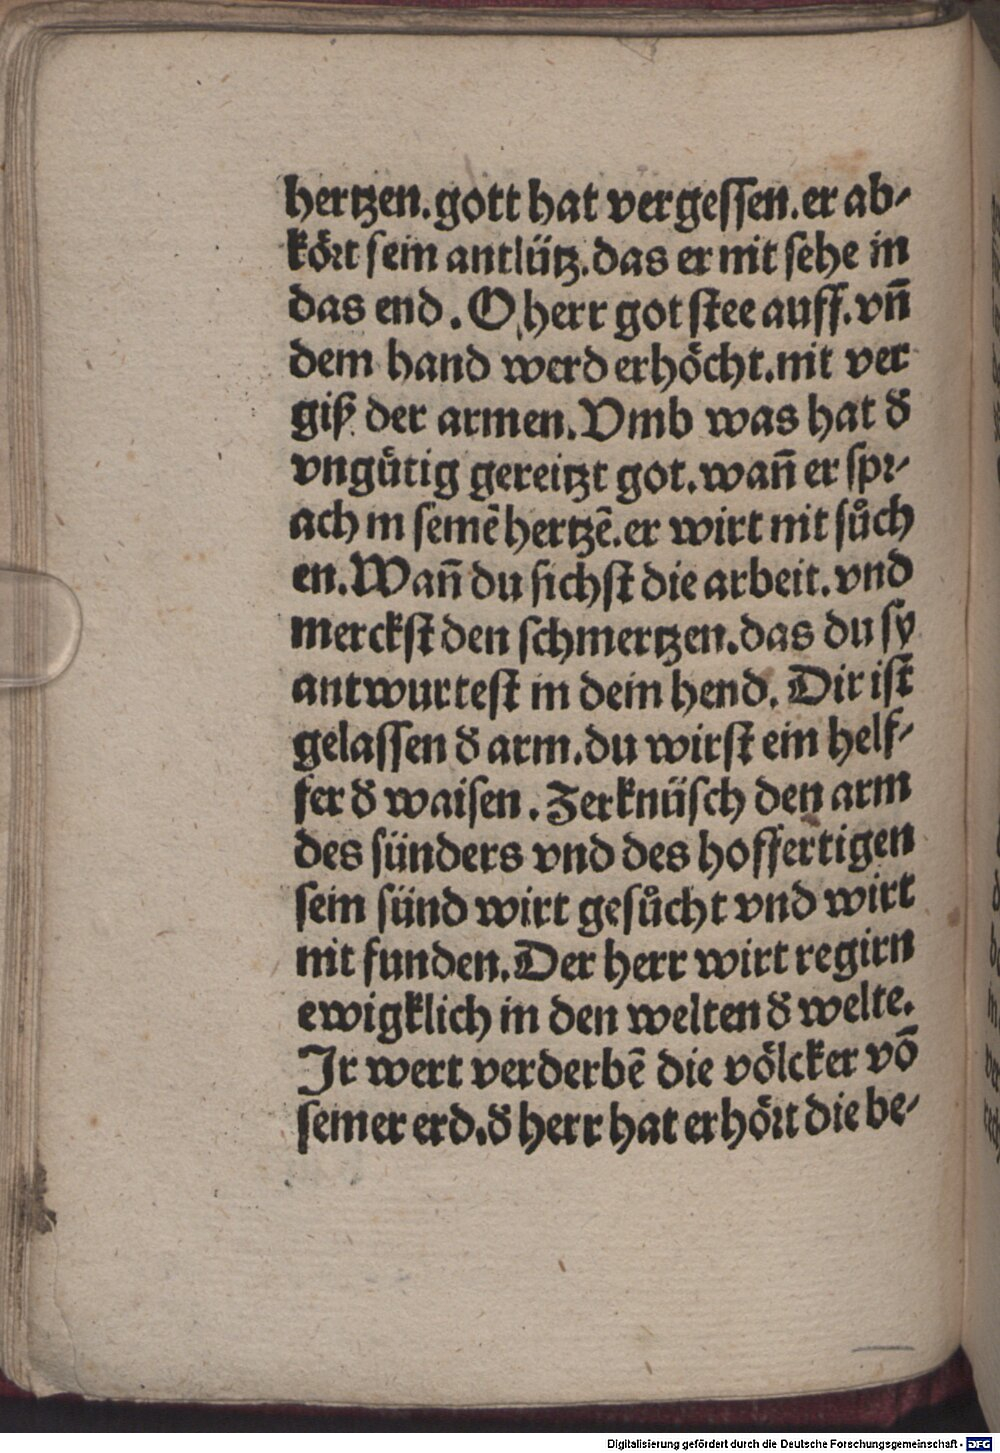 hertzen.gott hat vergessen.er ab⸗
kört sein antlütz.das er nit sehe in
das end. O herr got stee auff.vn̄
dein hand werd erhöcht.nit ver
giß der armen.Vmb was hat d̕
vngütig gereitzt got.wan̄ er spr⸗
ach in seinē hertzē.er wirt nit sůch
en.Wan̄ du sichst die arbeit.vnd
merckst den schmertzen.das du sy
antwurtest in dein hend. Dir ist
gelassen d̕ arm.du wirst ein helf⸗
fer d̕ waisen. Zerknüsch den arm
des sünders vnd des hoffertigen
sein sünd wirt gesůcht vnd wirt
nit funden.Der herr wirt regirn
ewigklich in den welten d̕ welte.
Ir wert verderbē die völcker vō
seiner erd.d̕ herr hat erhört die be⸗
Digitalisierung gefördert durch die Deutsche Forschungsgemeinschaft - DFG